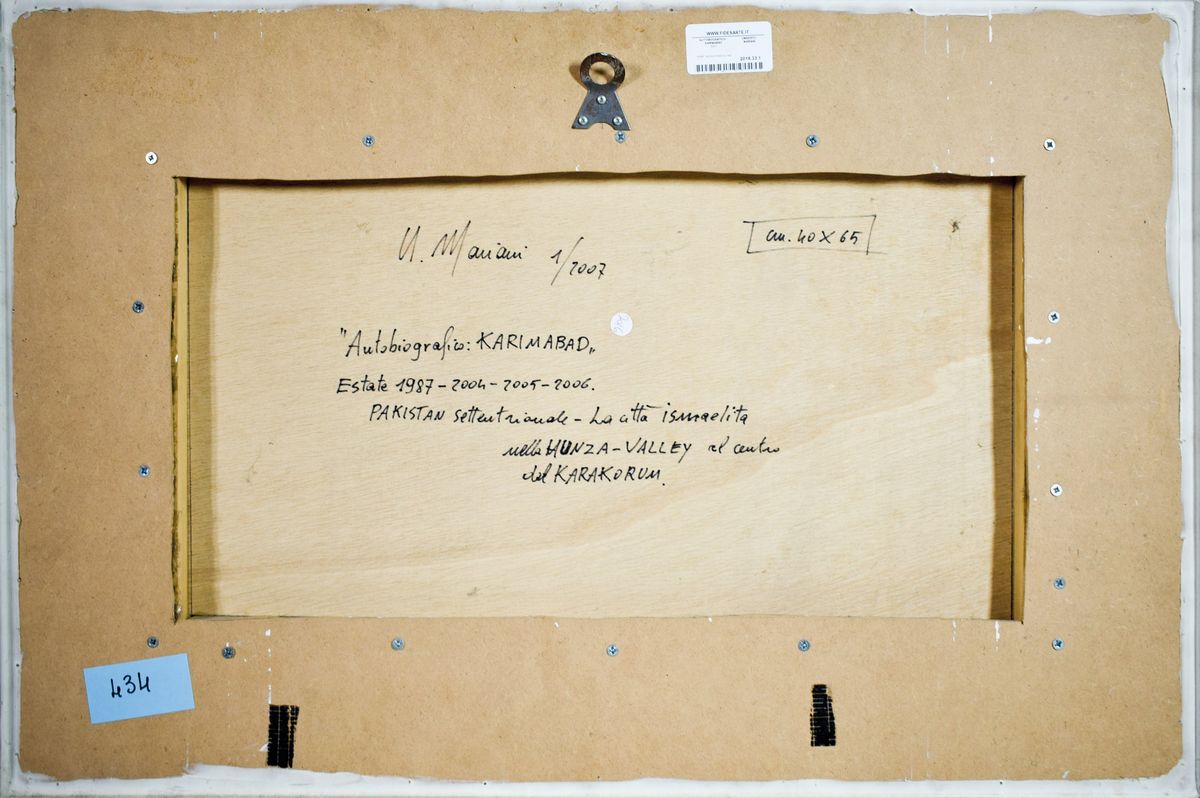 WWW.FIDESARTE.IT
2018.33.1
U. Mariani 1/2007
cm. 40 X 65
"Autobiografico: KARIMABAD„
Estate 1987-2004-2005-2006.
PAKISTAN settentrionale - La città ismaelita
nella HUNZA-VALLEY al centro
del KARAKORUM.
434